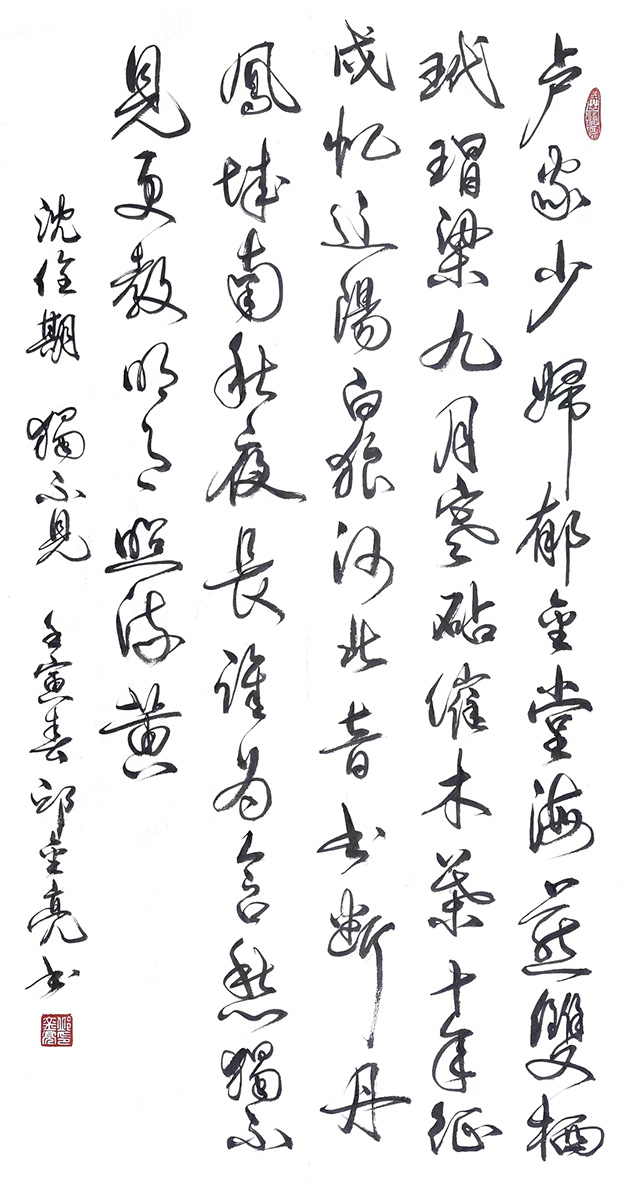 卢家少婦郁金堂海燕雙栖
玳瑁梁九月寒砧催木葉十年征
戍忆辽陽白狼河北音书断丹
鳳城南秋夜長谁为含愁獨不
見更教明月照流黄
沈佺期 獨不見 壬寅春邱金亮书